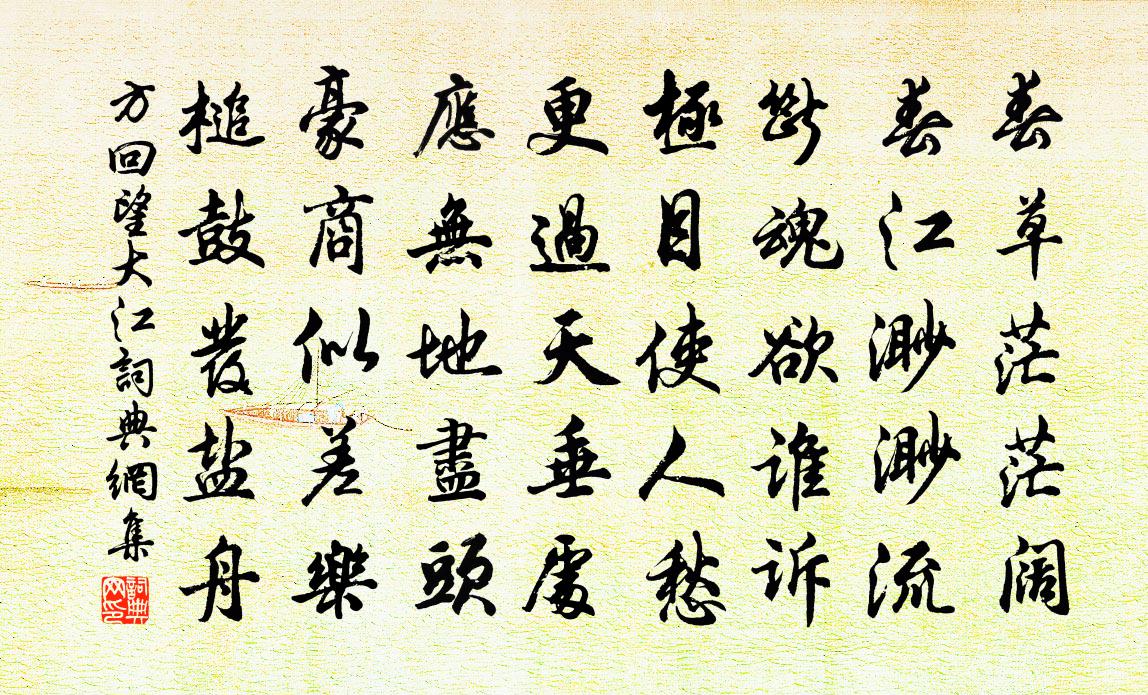 春草茫茫阔
春江渺渺流
断魂欲谁诉
極目使人愁
更過天垂處
應無地盡頭
豪商似差樂
槌鼓發盐舟
方回望大江詞典網集
詞典网印